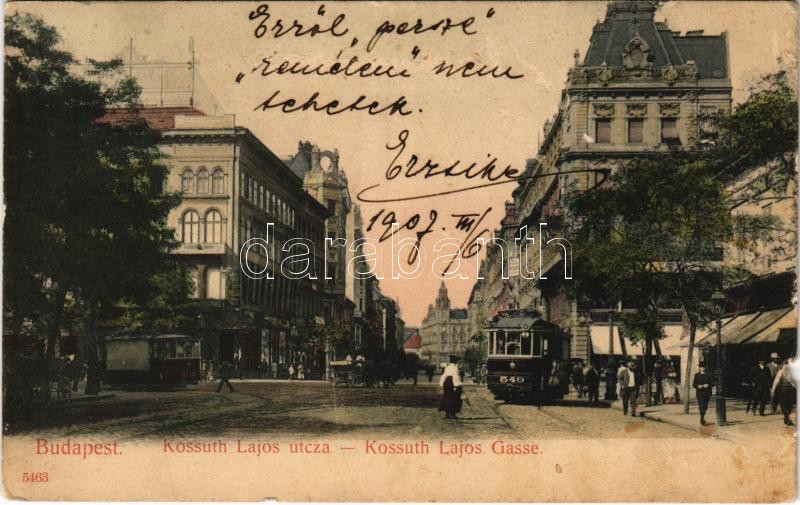 Erről, „persze"
„remélem" nem
tehetek.
Erzsike
1907. III/6
darabanth
549
Budapest. Kossuth Lajos utcza — Kossuth Lajos Gasse.
5463